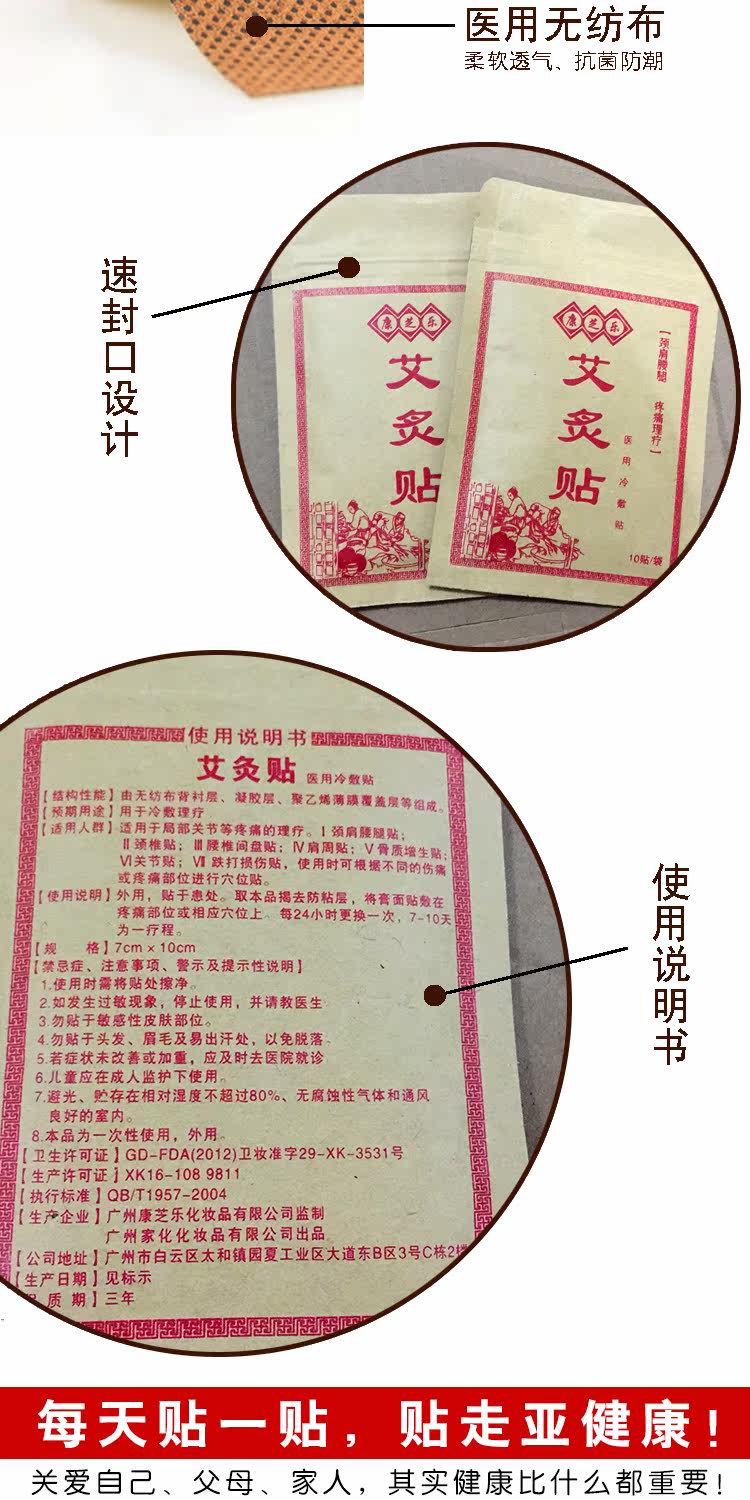 医用无纺布
柔软透气、抗菌防潮
速封口设计
康芝乐
艾灸贴
康芝乐
艾灸贴
【颈肩腰腿 疼痛理疗】
医用冷敷贴
10贴/袋
使用说明书
艾灸贴 医用冷敷贴
【结构性能】由无纺布背衬层、凝胶层、聚乙烯薄膜覆盖层等组成。
【预期用途】用于冷敷理疗
【适用人群】适用于局部关节等疼痛的理疗。Ⅰ颈肩腰腿贴；
Ⅱ颈椎贴；Ⅲ腰椎间盘贴；Ⅳ肩周贴；Ⅴ骨质增生贴；
Ⅵ关节贴；Ⅶ跌打损伤贴，使用时可根据不同的伤痛
或疼痛部位进行穴位贴。
【使用说明】外用，贴于患处。取本品揭去防粘层，将膏面贴敷在
疼痛部位或相应穴位上。每24小时更换一次，7-10天
为一疗程。
【规 格】7cm×10cm
【禁忌症、注意事项、警示及提示性说明】
1.使用时需将贴处擦净。
2.如发生过敏现象，停止使用，并请教医生
3.勿贴于敏感性皮肤部位。
4.勿贴于头发、眉毛及易出汗处，以免脱落。
5.若症状未改善或加重，应及时去医院就诊
6.儿童应在成人监护下使用。
7.避光、贮存在相对湿度不超过80%、无腐蚀性气体和通风
良好的室内。
8.本品为一次性使用，外用。
【卫生许可证】GD-FDA(2012)卫妆准字29-XK-3531号
【生产许可证】XK16-108 9811
【执行标准】QB/T1957-2004
【生产企业】广州康芝乐化妆品有限公司监制
广州家化化妆品有限公司出品
【公司地址】广州市白云区太和镇园夏工业区大道东B区3号C栋2
【生产日期】见标示
质 期】三年
使用说明书
每天贴一贴，贴走亚健康！
关爱自己、父母、家人，其实健康比什么都重要！